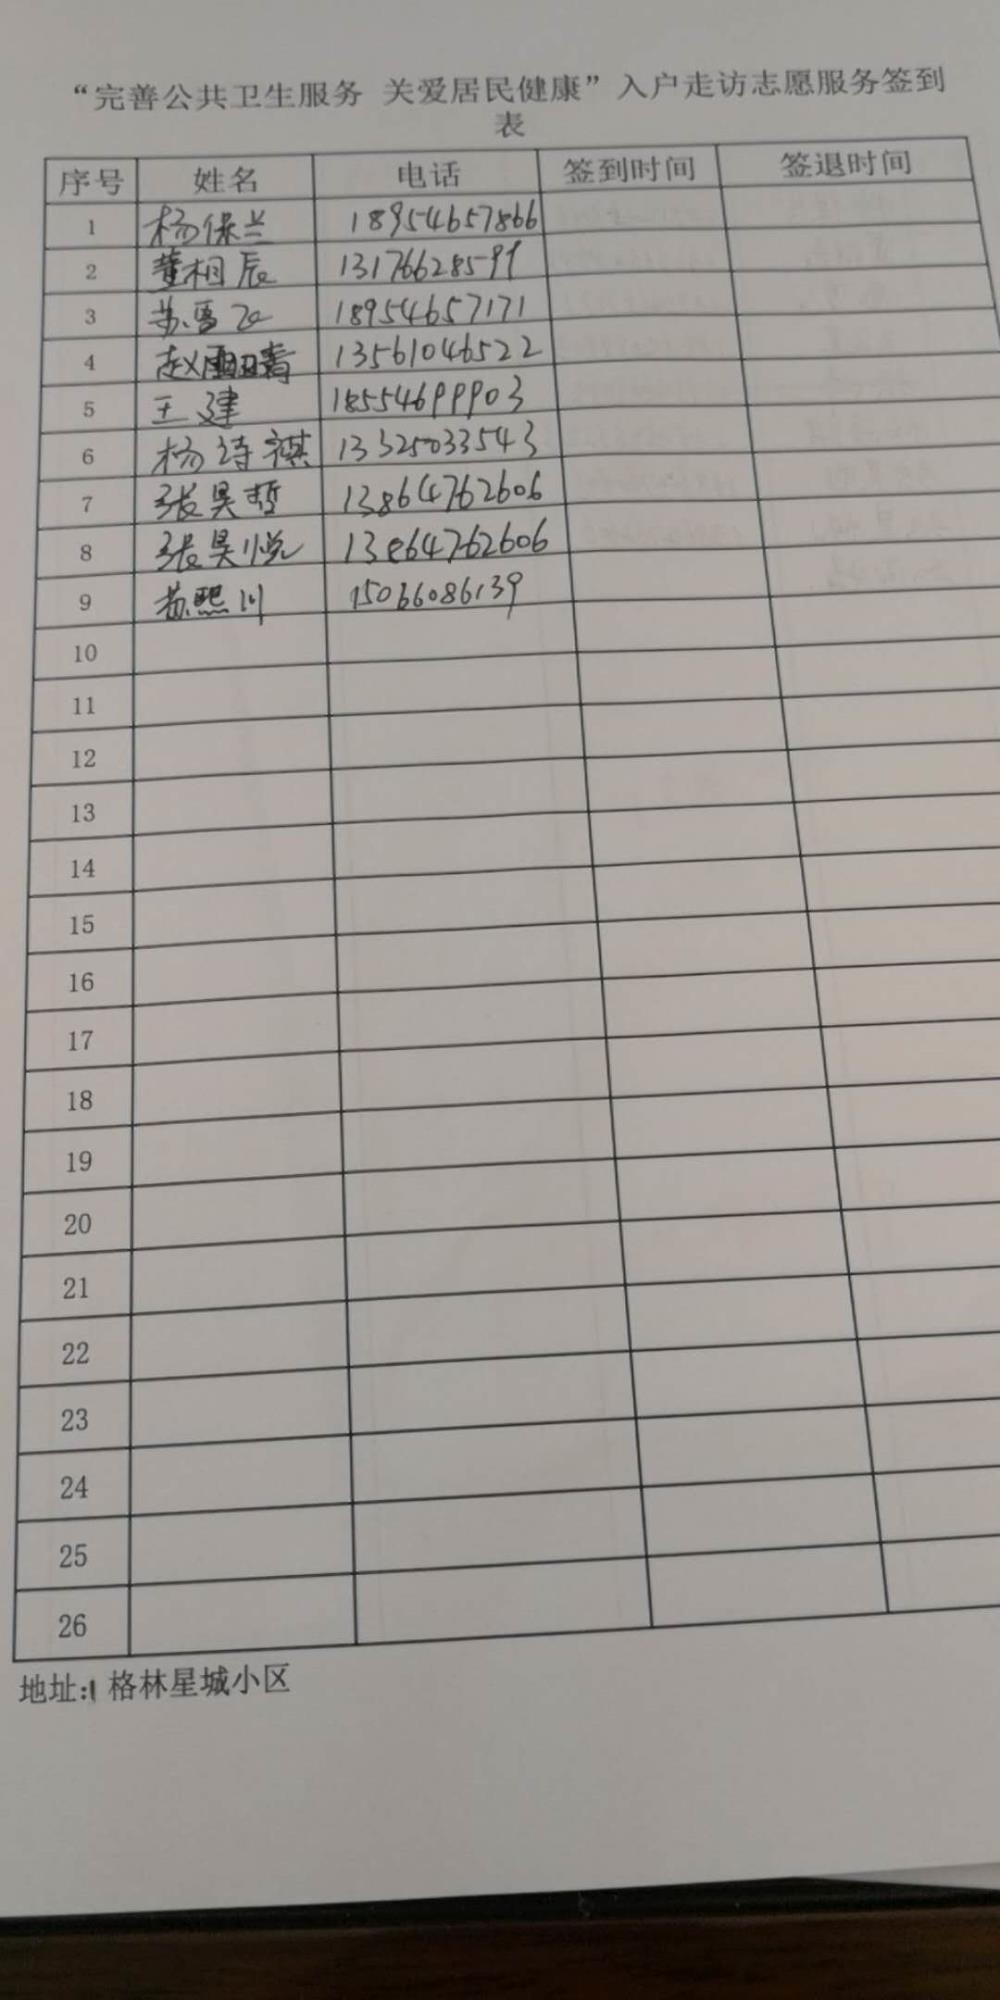 “完善公共卫生服务 关爱居民健康”入户走访志愿服务签到
表
序号 姓名 电话 签到时间 签退时间
1 杨保兰 18954657866
2 董相辰 13176628599
3 苏雪飞 18954657171
4 赵雨晴 13561046522
5 王建 18554699903
6 杨诗祺 13325033543
7 张昊哲 13864762606
8 张昊悦 13864762606
9 苏熙川 15066086139
10
11
12
13
14
15
16
17
18
19
20
21
22
23
24
25
26
地址: 格林星城小区